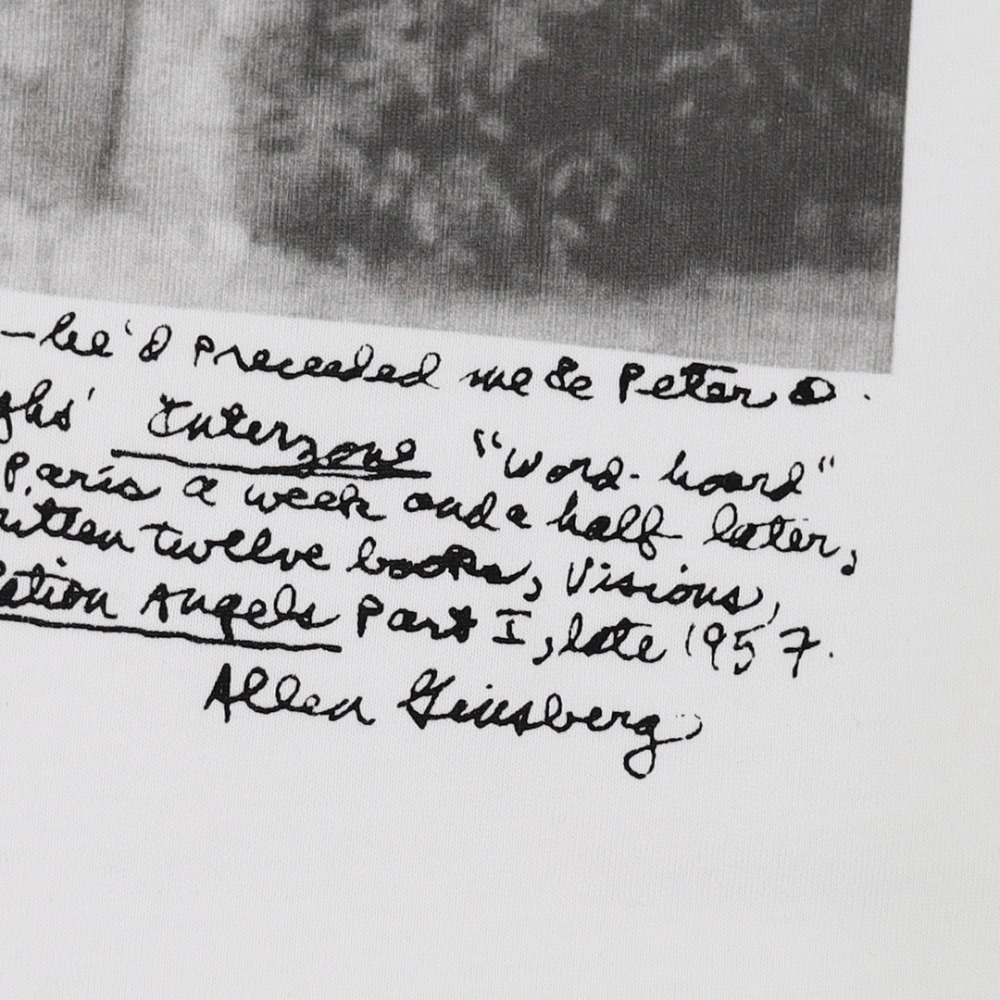 —he'd preceeded me & Peter O.
ghs' Interzone "Word-hoard"
Paris a week and a half later,
ritten twelve books, Visions,
ation Angels Part I, late 1957.
Allen Ginsberg